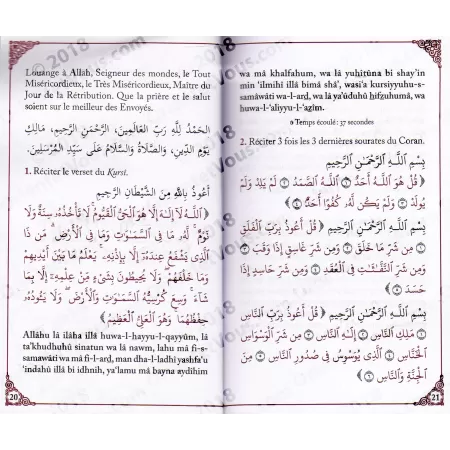 Louange à Allah, Seigneur des mondes, le Tout
Miséricordieux, le Très Miséricordieux, Maître du
Jour de la Rétribution. Que la prière et le salut
soient sur le meilleur des Envoyés.
الحَمْدُ لِلَّهِ رَبِّ العَالَمِينَ، الرَّحْمَنِ الرَّحِيمِ، مَالِكِ
يَوْمِ الدِّينِ، وَالصَّلَاةُ وَالسَّلَامُ عَلَى سَيِّدِ المُرْسَلِينَ.
1. Réciter le verset du Kursi.
أَعُوذُ بِاللَّهِ مِنَ الشَّيْطَانِ الرَّجِيمِ
﴿اللَّهُ لَا إِلَهَ إِلَّا هُوَ الْحَيُّ الْقَيُّومُ لَا تَأْخُذُهُ سِنَةٌ وَلَا
نَوْمٌ لَهُ مَا فِي السَّمَاوَاتِ وَمَا فِي الْأَرْضِ مَنْ ذَا
الَّذِي يَشْفَعُ عِنْدَهُ إِلَّا بِإِذْنِهِ يَعْلَمُ مَا بَيْنَ أَيْدِيهِمْ
وَمَا خَلْفَهُمْ وَلَا يُحِيطُونَ بِشَيْءٍ مِنْ عِلْمِهِ إِلَّا بِمَا
شَاءَ وَسِعَ كُرْسِيُّهُ السَّمَاوَاتِ وَالْأَرْضَ وَلَا يَئُودُهُ
حِفْظُهُمَا وَهُوَ الْعَلِيُّ الْعَظِيمُ﴾
Allâhu lâ ilâha illâ huwa-l-hayyu-l-qayyûm, lâ
ta'khudhuhû sinatun wa lâ nawm, lahu mâ fi-s-
samawâti wa mâ fi-l-ard, man dha-l-ladhî yashfa'u
'indahû illâ bi idhnih, ya'lamu mâ bayna aydîhim
20
wa mâ khalfahum, wa lâ yuhîtûna bi shay'in
min 'ilmihi illâ bimâ shâ', wasi'a kursiyyuhu-s-
samâwâti wa-l-ard, wa lâ ya'ûduhû hifzuhumâ, wa
huwa-l-'aliyyu-l-'azîm.
Temps écoulé : 37 secondes
2. Réciter 3 fois les 3 dernières sourates du Coran.
بِسْمِ اللَّهِ الرَّحْمَنِ الرَّحِيمِ
﴿قُلْ هُوَ اللَّهُ أَحَدٌ ۝ اللَّهُ الصَّمَدُ ۝ لَمْ يَلِدْ وَلَمْ
يُولَدْ ۝ وَلَمْ يَكُنْ لَهُ كُفُوًا أَحَدٌ ۝﴾
بِسْمِ اللَّهِ الرَّحْمَنِ الرَّحِيمِ ﴿قُلْ أَعُوذُ بِرَبِّ الْفَلَقِ
۝ مِنْ شَرِّ مَا خَلَقَ ۝ وَمِنْ شَرِّ غَاسِقٍ إِذَا وَقَبَ ۝
وَمِنْ شَرِّ النَّفَّاثَاتِ فِي الْعُقَدِ ۝ وَمِنْ شَرِّ حَاسِدٍ إِذَا
حَسَدَ ۝﴾
بِسْمِ اللَّهِ الرَّحْمَنِ الرَّحِيمِ ﴿قُلْ أَعُوذُ بِرَبِّ النَّاسِ
۝ مَلِكِ النَّاسِ ۝ إِلَهِ النَّاسِ ۝ مِنْ شَرِّ الْوَسْوَاسِ
الْخَنَّاسِ ۝ الَّذِي يُوَسْوِسُ فِي صُدُورِ النَّاسِ ۝ مِنَ
الْجِنَّةِ وَالنَّاسِ ۝﴾
21